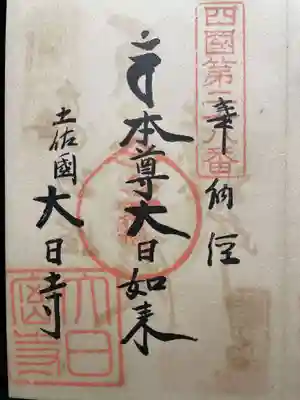 四國第二八番
奉納経
本尊大日如来
土佐國
大日寺
大日寺